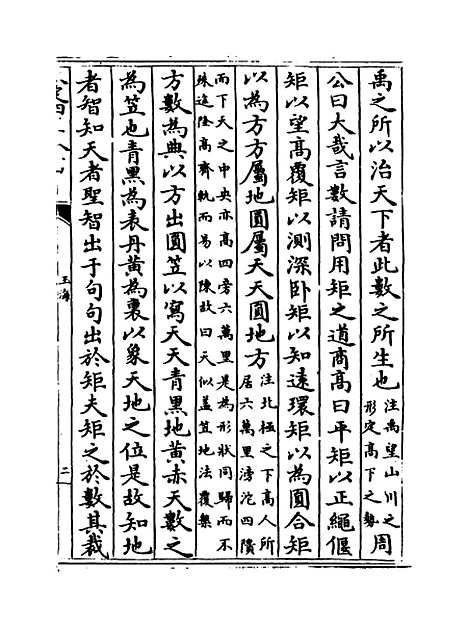 禹之所以治天下者此數之所生也注禹望山川之形定高下之勢周
公曰大哉言數請問用矩之道商髙曰平矩以正繩偃
矩以望髙覆矩以測深卧矩以知逺環矩以為圓合矩
以為方方屬地圓屬天天圓地方注北極之下高人所居六萬里滂沱四隤
而下天之中央亦高四旁六萬里是為形狀同歸而不殊途隆高齊軌而易以陳故曰天似蓋笠地法覆槃
方數為典以方出圓笠以寫天天青黑地黄赤天數之
為笠也青黑為表丹黄為裏以象天地之位是故知地
者智知天者聖智出于句句出於矩夫矩之於數其裁
玉海
二